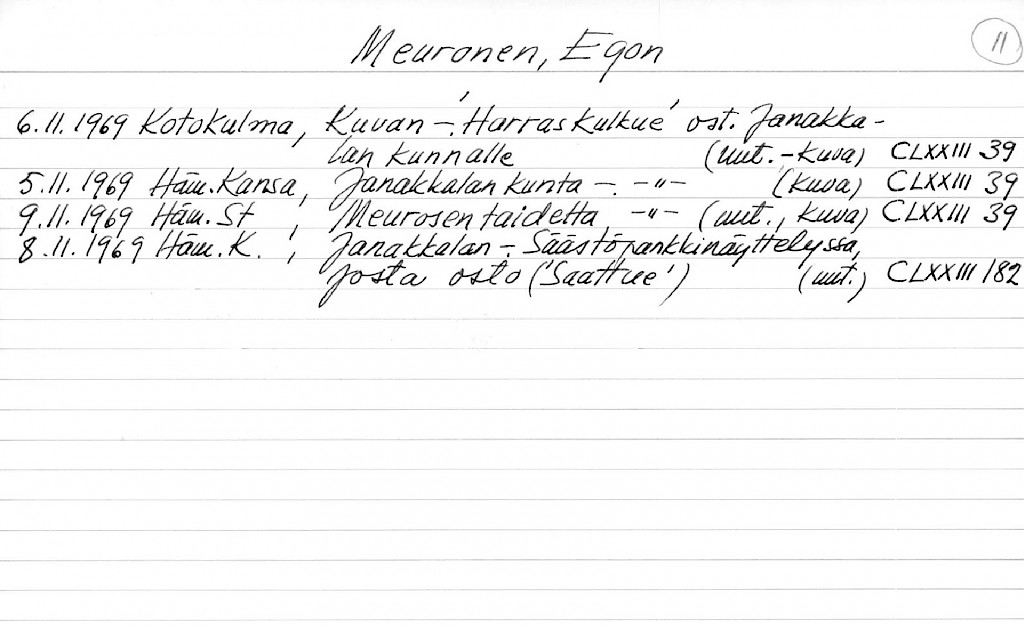 Meuronen, Egon
11
6.11.1969 Kotokulma, Kuvan -. 'Harras kulkue' ost. Janakka-
lan kunnalle (uut.-kuva) CLXXIII 39
5.11.1969 Häm. Kansa, Janakkalan kunta -. -"- (kuva) CLXXIII 39
9.11.1969 Häm. St , Meurosen taidetta -"- (uut., kuva) CLXXIII 39
8.11.1969 Häm. K. , Janakkalan -. Säästöpankkinäyttelyssä,
josta osto ('Saattue') (uut.) CLXXIII 182